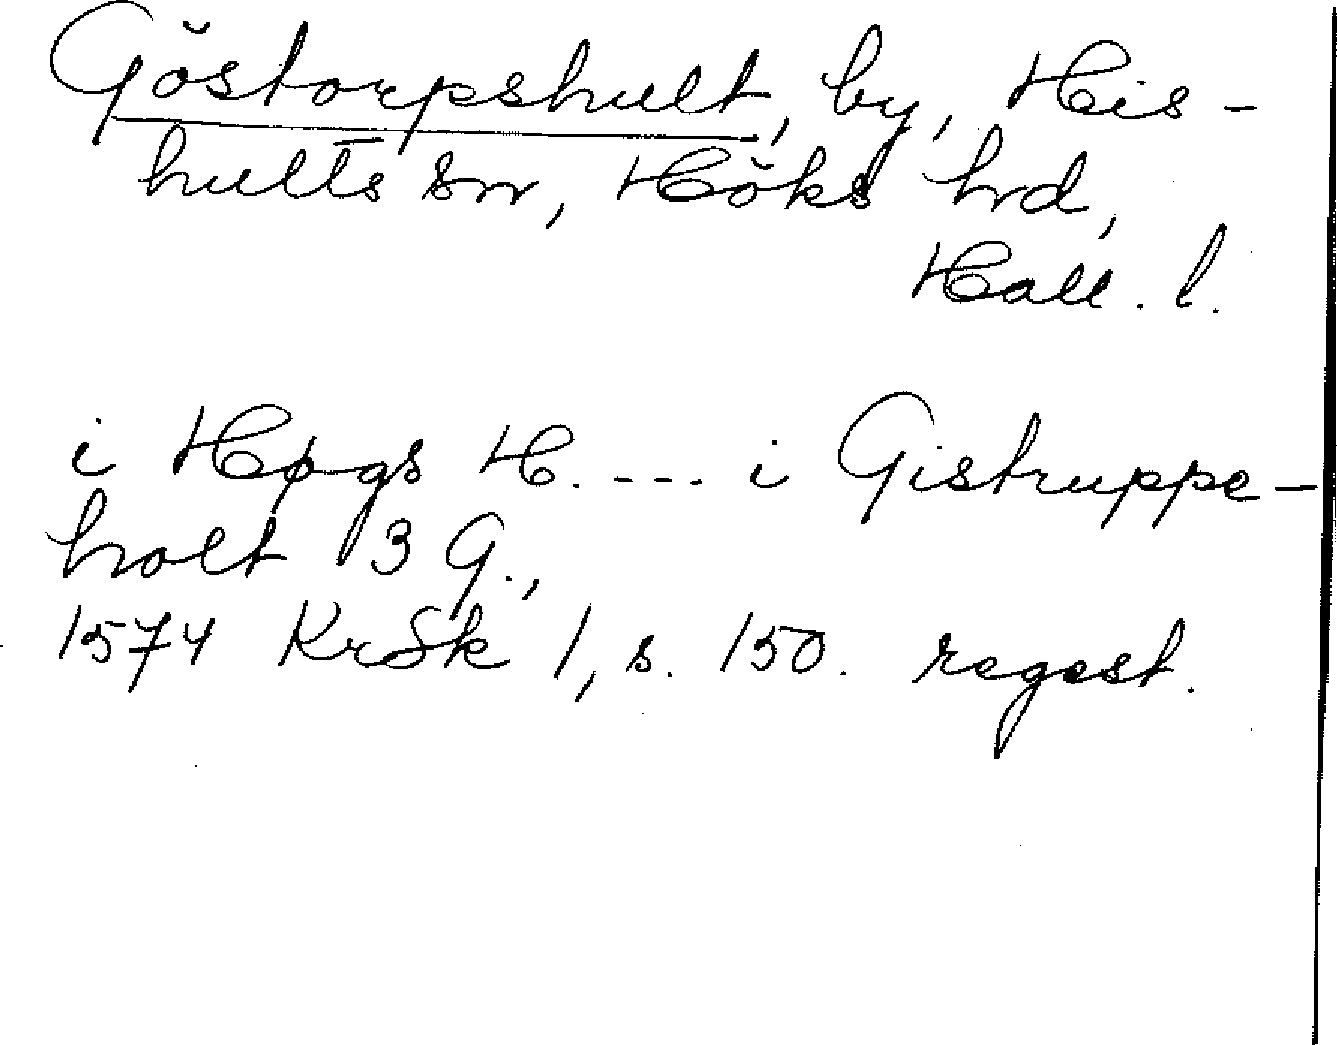 Göstorpshult, by, His-
hults sn, Höks hrd,
Hall. l.
i Høgs H. ---. i Gistruppe-
holt 3 G.,
1574 KrSk 1, s. 150. regest.